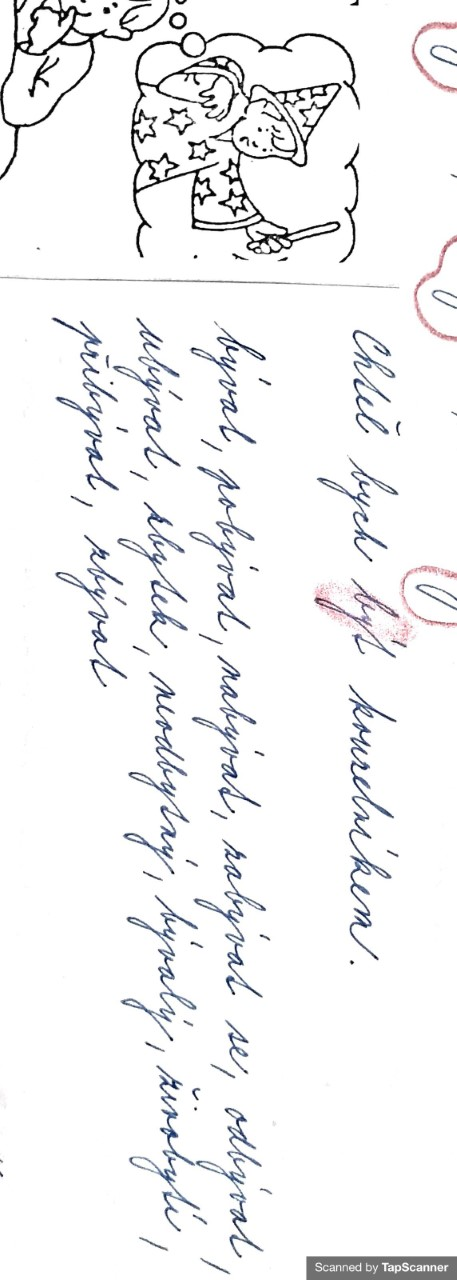 Chtěl bych být kouzelníkem.
bývat, pobývat, nabývat, zabývat se, odbývat,
ubývat, zbytek, neodbytný, bývalý, živobytí,
přibývat, zbývat
Scanned by TapScanner